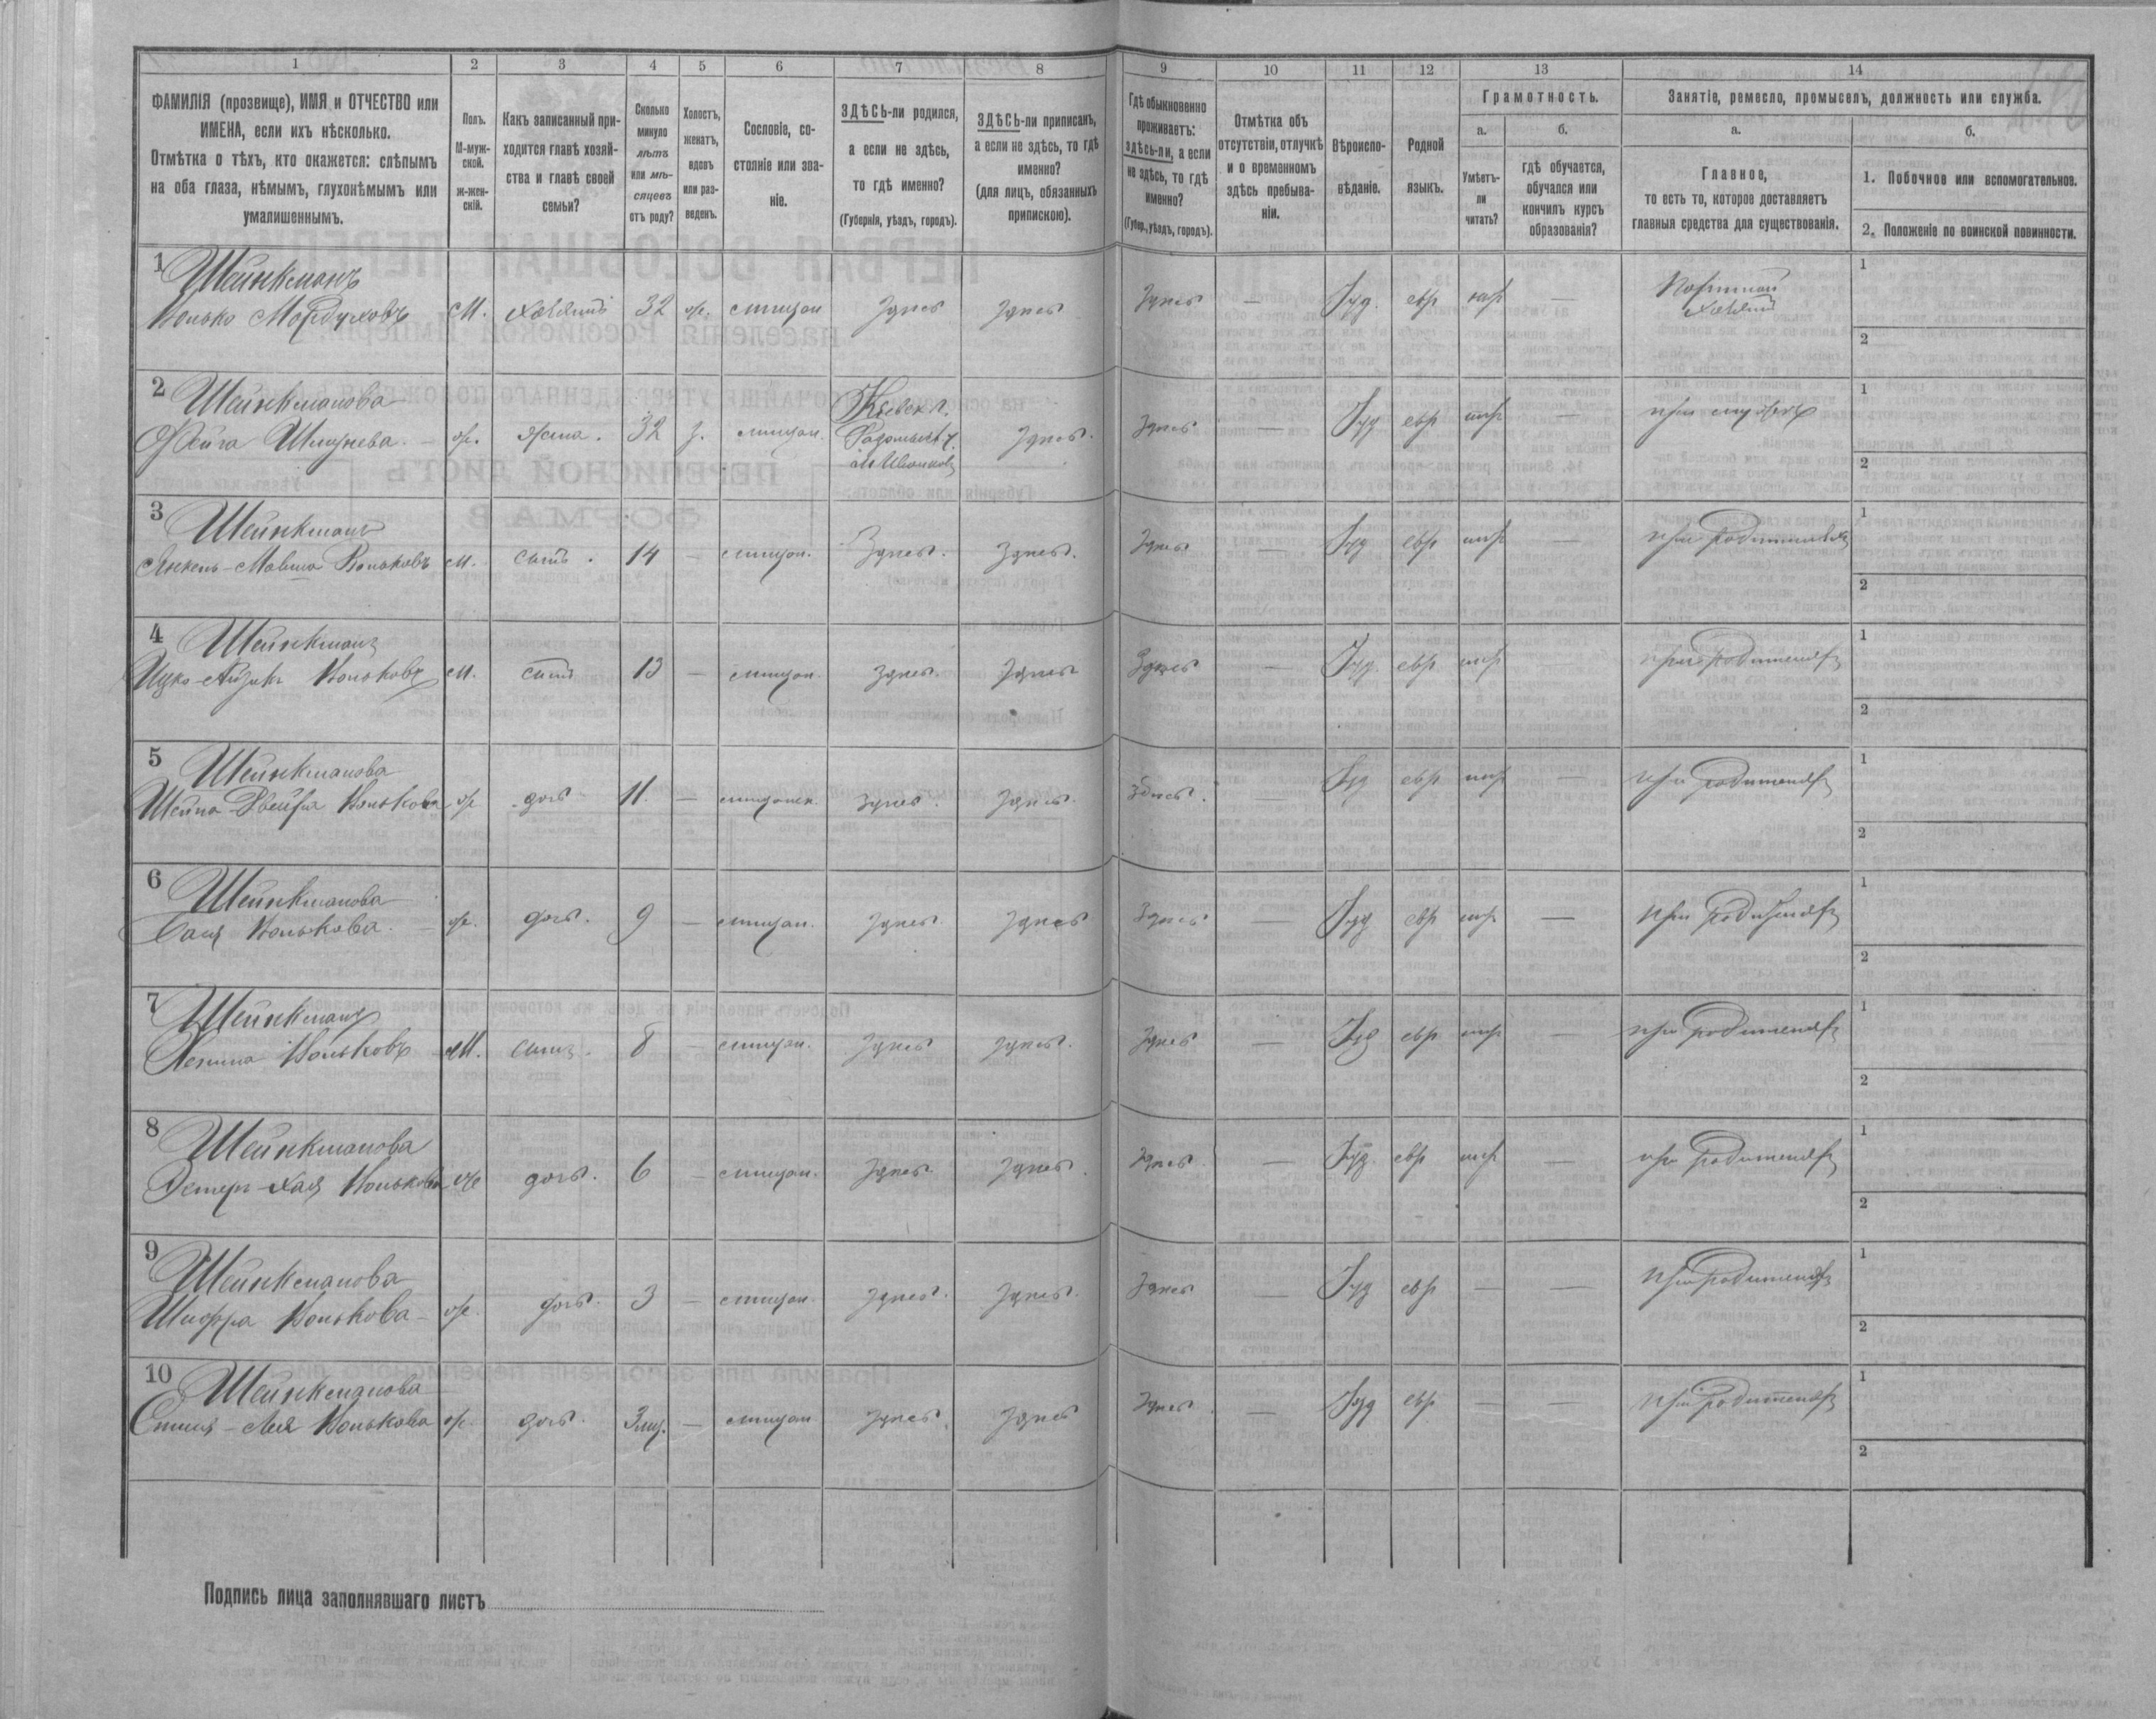 1 2 3 4 5 6 7 8 9 10 11 12 13 14
ФАМИЛІЯ (прозвище), ИМЯ и ОТЧЕСТВО или
ИМЕНА, если ихъ нѣсколько.
Отмѣтка о тѣхъ, кто окажется: слѣпымъ
на оба глаза, нѣмымъ, глухонѣмымъ или
умалишеннымъ.
Полъ.
М-муж-
ской.
ж-жен-
скій.
Какъ записанный при-
ходится главѣ хозяй-
ства и главѣ своей
семьи?
Сколько
минуло
лѣтъ
или мѣ-
сяцевъ
отъ роду?
Холостъ,
женатъ,
вдовъ
или раз-
веденъ.
Сословіе, со-
стояніе или зва-
ніе.
ЗДѢСЬ-ли родился,
а если не здѣсь,
то гдѣ именно?
(Губернія, уѣздъ, городъ).
ЗДѢСЬ-ли приписанъ,
а если не здѣсь, то гдѣ
именно?
(для лицъ, обязанныхъ
припискою).
Гдѣ обыкновенно
проживаетъ:
здѣсь-ли, а если
не здѣсь, то гдѣ
именно?
(Губер., уѣздъ, городъ).
Отмѣтка объ
отсутствіи, отлучкѣ
и о временномъ
здѣсь пребыва-
ніи.
Вѣроиспо-
вѣданіе.
Родной
языкъ.
Грамотность.
а.
Умѣетъ-
ли
читать?
б.
гдѣ обучается,
обучался или
кончилъ курсъ
образованія?
Занятіе, ремесло, промыселъ, должность или служба.
а.
Главное,
то есть то, которое доставляетъ
главныя средства для существованія.
б.
1. Побочное или вспомогательное.
2. Положеніе по воинской повинности.
1 Шейнкманъ
Волько Мордуховъ М. хозяинъ 32 ж. мѣщан здѣсь здѣсь здѣсь — Іуд. евр — Портной 1
хозяинъ 2
2 Шейнкманова Кіевск г.
Фейга Шмулева ж. жена. 32 з. мѣщан. Радомысл у. здѣсь. здѣсь — Іуд евр при мужѣ 1
2
3 Шейнкманъ
Янкель-Мовша Вольковъ М. сынъ. 14 — мѣщан. Здѣсь. Здѣсь. Здѣсь — Іуд евр — при родителяхъ 1
2
4 Шейнкманъ
Ицко-Айзикъ Вольковъ М. сынъ 13 — мѣщан. здѣсь. здѣсь Здѣсь — Іуд евр при родителяхъ 1
2
5 Шейнкманова
Шейна-Двейра Волькова ж дочь 11. — мѣщанск. здѣсь. здѣсь. здѣсь. — Іуд евр — при родителяхъ 1
2
6 Шейнкманова
Волькова. ж. дочь. 9 — мѣщан. здѣсь. здѣсь здѣсь — Іуд евр — при родителяхъ 1
2
7 Шейнкманъ
Вольковъ М. сынъ. 8 — мѣщан. здѣсь здѣсь. здѣсь — Іуд евр — при родителяхъ 1
2
8 Шейнкманова
Эстеръ-Хая Волькова ж дочь. 6 — мѣщан. здѣсь. здѣсь. здѣсь. — Іуд. евр — при родителяхъ 1
2
9 Шейнкманова
Шифра Волькова ж. дочь. 3 — мѣщан. здѣсь. здѣсь. здѣсь — Іуд евр — — при родителяхъ 1
2
10 Шейнкманова
Лея Волькова ж. дочь. 3 мѣс. — мѣщан здѣсь. здѣсь здѣсь. — Іуд евр — — при родителяхъ 1
2
Подпись лица заполнявшаго листъ